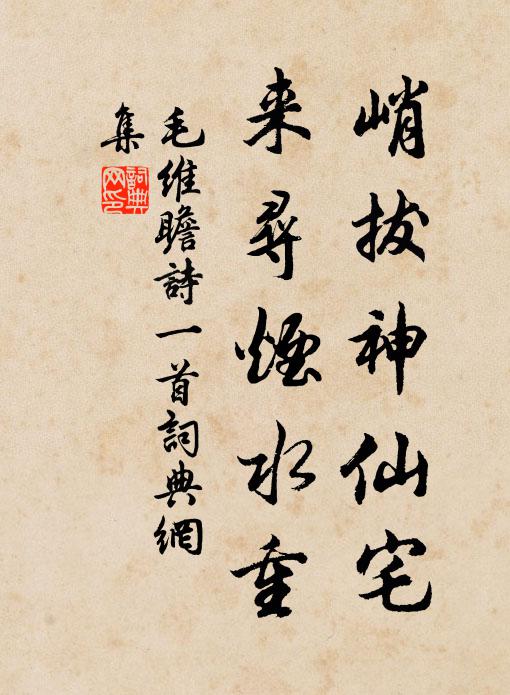 峭拔神仙宅
来尋煙水重
毛維瞻詩一首詞典網
集
詞典
网印